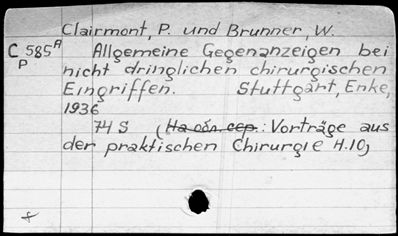 Clairmont, P. und Brunner, W.
C 585A Allgemeine Gegenanzeigen bei
P
nicht dringlichen chirurgischen
Eingriffen. Stuttgart, Enke,
1936
74 S (На обл. сер.: Vorträge aus
der praktischen Chirurgie H.10)